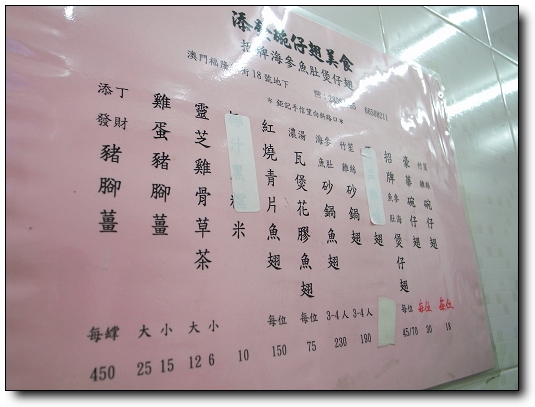 添發碗仔翅美食
招牌海參魚肚煲仔翅
澳門福隆新街18號地下 66588211
＊鉅記手信望向斜路口＊
竹笙雞絲碗仔翅 每位 18
豪華碗仔翅 每位 30
招牌魚肚海參煲仔翅 每位 45/70
翅
竹笙雞絲砂鍋翅 3-4人 190
海參魚肚砂鍋魚翅 3-4人 230
濃湯瓦煲花膠魚翅 每位 75
紅燒青片魚翅 每位 150
米 10
靈芝雞骨草茶 大 小 12 6
雞蛋豬腳薑 大 小 25 15
添丁發財豬腳薑 每罉 450